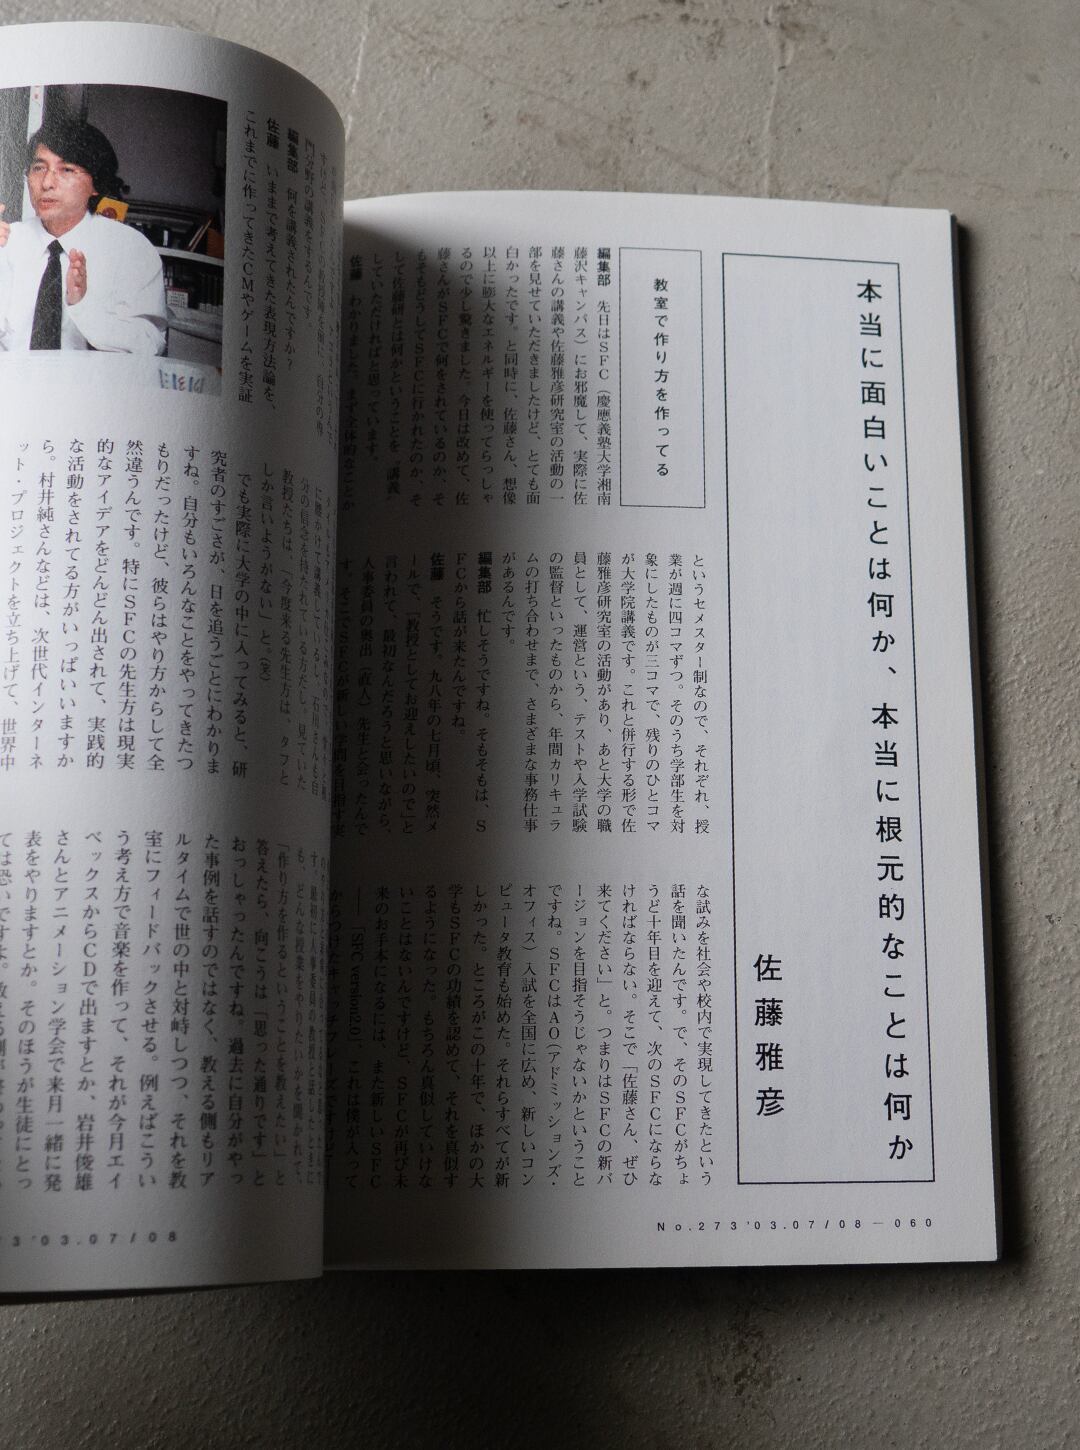 本当に面白いことは何か、本当に根元的なことは何か
佐藤雅彦
教室で作り方を作ってる
編集部　先日はSFC（慶應義塾大学湘南
藤沢キャンパス）にお邪魔して、実際に佐
藤さんの講義や佐藤雅彦研究室の活動の一
部を見せていただきましたけど、とても面
白かったです。と同時に、佐藤さん、想像
以上に膨大なエネルギーを使ってらっしゃ
るので少し驚きました。今日は改めて、佐
藤さんがSFCで何をされているのか、そ
もそもどうしてSFCに行かれたのか、そ
して佐藤研とは何かということを、講義
していただければと思っています。
佐藤　わかりました。まず全体的なことか
というセメスター制なので、それぞれ、授
業が週に四コマずつ。そのうち学部生を対
象にしたものが三コマで、残りのひとコマ
が大学院講義です。これと併行する形で佐
藤雅彦研究室の活動があり、あと大学の職
員として、運営という、テストや入学試験
の監督といったものから、年間カリキュラ
ムの打ち合わせまで、さまざまな事務仕事
があるんです。
編集部　忙しそうですね。そもそもは、S
FCから話が来たんですね。
佐藤　そうです。九八年の七月頃、突然メ
ールで、「教授としてお迎えしたいので」と
言われて、最初なんだろうと思いながら、
人事委員の奥出（直人）先生と会ったんで
す。そこでSFCが新しい学問を目指す実
な試みを社会や校内で実現してきたという
話を聞いたんです。で、そのSFCがちょ
うど十年目を迎えて、次のSFCにならな
ければならない。そこで「佐藤さん、ぜひ
来てください」と。つまりはSFCの新バ
ージョンを目指そうじゃないかということ
ですね。SFCはAO（アドミッションズ・
オフィス）入試を全国に広め、新しいコン
ピュータ教育も始めた。それらすべてが新
しかった。ところがこの十年で、ほかの大
学もSFCの功績を認めて、それを真似す
るようになった。もちろん真似していけな
いことはないんですけど、SFCが再び未
来のお手本になるには、また新しいSFC
――「SFC version2.0」、これは僕が入って
No.273'03.07/08—060
編集部　何を講義されたんですか？
佐藤　いままで考えてきた表現方法論を、
これまでに作ってきたCMやゲームを実証
教授たちは、「今度来る先生方は、タフと
しか言いようがない」と。（笑）
でも実際に大学の中に入ってみると、研
究者のすごさが、日を追うごとにわかりま
すね。自分もいろんなことをやってきたつ
もりだったけど、彼らはやり方からして全
然違うんです。特にSFCの先生方は現実
的なアイデアをどんどん出されて、実践的
な活動をされてる方がいっぱいいますか
ら。村井純さんなどは、次世代インターネ
ット・プロジェクトを立ち上げて、世界中
も、どんな授業をやりたいかを聞かれて、
「作り方を作るということを教えたい」と
答えたら、向こうは「思った通りです」と
おっしゃったんですね。過去に自分がやっ
た事例を話すのではなく、教える側もリア
ルタイムで世の中と対峙しつつ、それを教
室にフィードバックさせる。例えばこうい
う考え方で音楽を作って、それが今月エイ
ベックスからCDで出ますとか、岩井俊雄
さんとアニメーション学会で来月一緒に発
表をやりますとか。そのほうが生徒にとっ
3'03.07/08